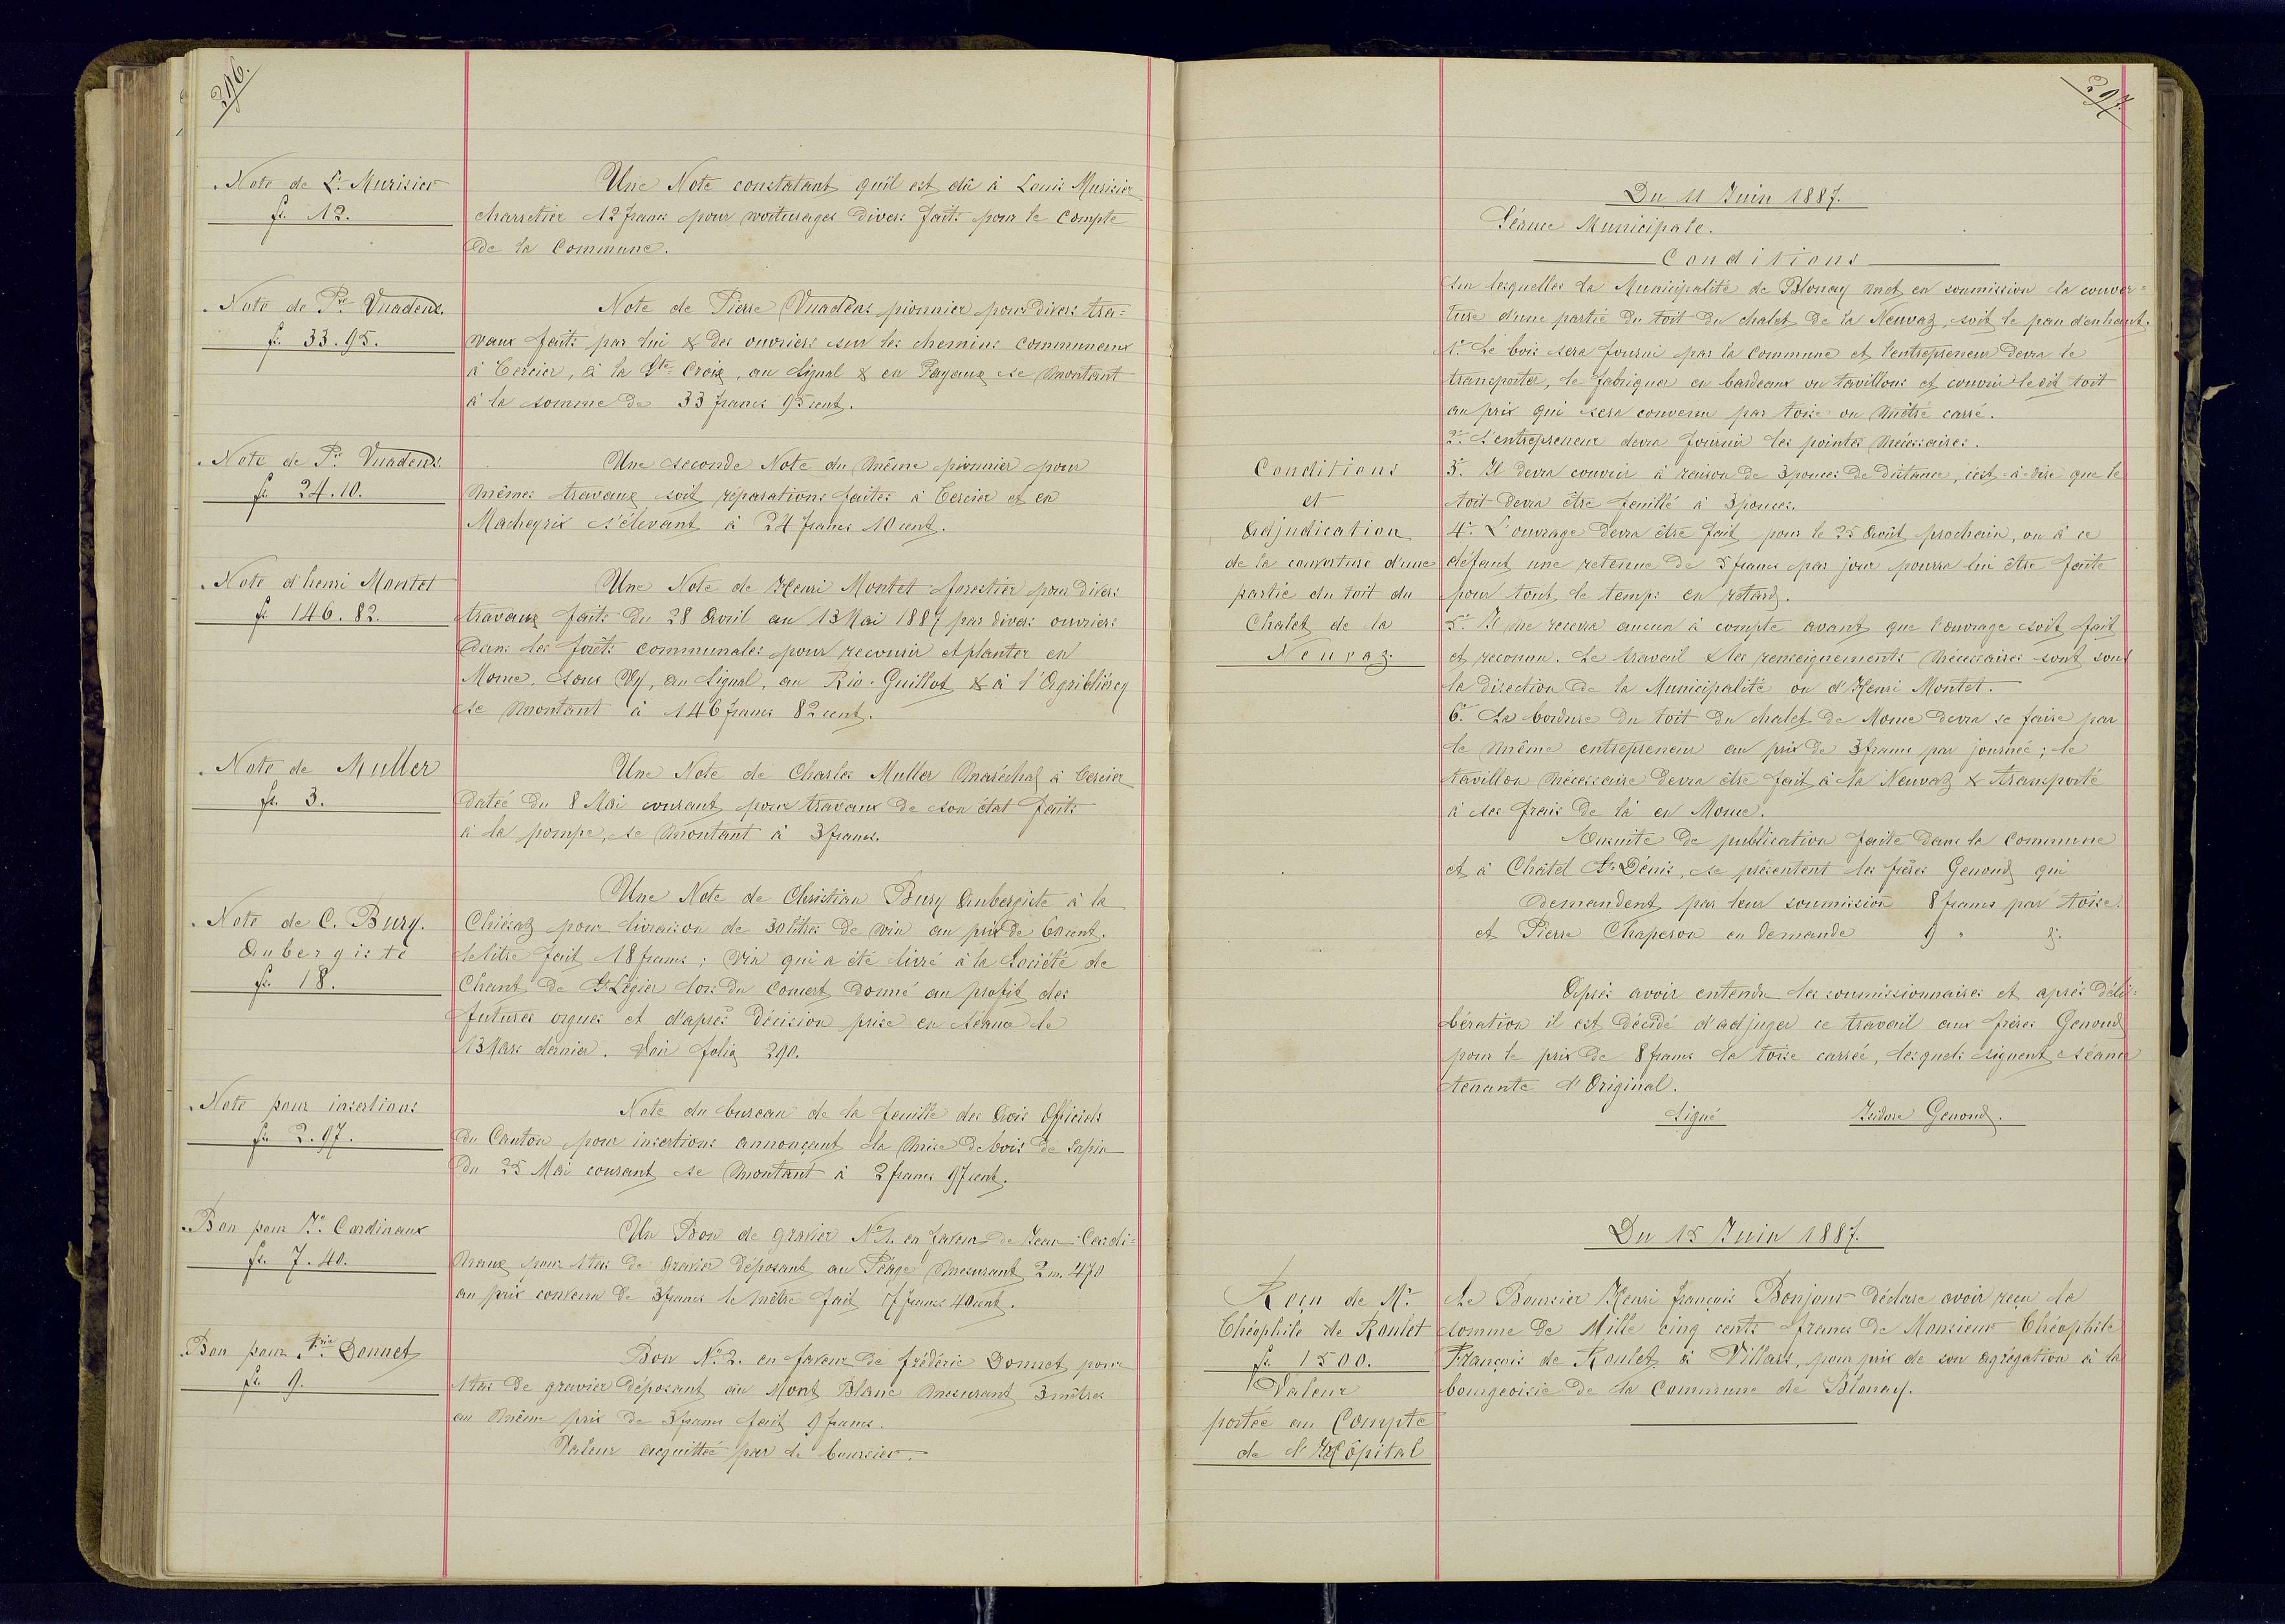 296.
Note de Ls. Murisier
fr. 12.
Une Note constatant qu'il est dû à Louis Murisier
charretier 12 francs pour voiturages divers faits pour le Compte
de la Commune.
Note de Pre. Vuadens.
fr. 33.95.
Note de Pierre Vuadens pionnier pour divers tra=
vaux faits par lui & des ouvriers sur les chemins communaux
à Cercier, à la Ste. Croix, au Signal & en Payaux se montant
à la somme de 33 francs 95 cent.
Note de Pre. Vuadens.
fr. 24.10.
Une seconde Note du même pionnier pour
mêmes travaux soit réparations faites à Cercier et en
Macheyrix s'élevant à 24 francs 10 cent.
Note d'henri Montet
fr. 146.82.
Une Note de Henri Montet forestier pour divers
travaux faits du 28 Avril au 13 Mai 1887 par divers ouvriers
dans les forêts communales pour recourir et planter en
Morne, sous Vy, au Signal, au Rio-Guillot & à l'
se montant à 146 francs 82 cent.
Note de Muller
fr. 3.
Une Note de Charles Muller Maréchal à Cercier
datée du 8 Mai courant pour travaux de son état faits
à la pompe, se montant à 3 francs.
Note de C. Bury.
Aubergiste
fr. 18.
Une Note de Christian Bury Aubergiste à la
Chiésaz pour livraison de 30 litres de vin au prix de 60 cent.
le litre fait 18 francs ; vin qui a été livré à la Société de
Chant de St. Légier lors du Concert donné au profit des
futures orgues et d'après décision prise en séance le
13 Mars dernier. Voir folio 290.
Note pour insertions
fr. 2.97.
Note du bureau de la feuille des Avis Officiels
du Canton pour insertions annonçant la mise de bois de sapin
du 25 Mai courant se montant à 2 francs 97 cent.
Bon pour Jn. Cardinaux
fr. 7.40.
Un Bon de gravier No. 1. en faveur de Jean Cardi=
naux pour 1 tas de gravier déposant au Péage mesurant 2 m. 470
au prix convenu de 3 francs le mètre fait 7 francs 40 cent.
Bon pour Fric. Donnet
fr. 9.
Bon No. 2. en faveur de frédéric Donnet pour
1 tas de gravier déposant au Mont Blanc mesurant 3 mètres
au même prix de 3 francs fait 9 francs.
Valeur acquittée par le boursier.
297.
Du 11 Juin 1887.
Séance Municipale.
Conditions
sur lesquelles la Municipalité de Blonay met en soumission la couver=
ture d'une partie du toit du chalet de la Neuvaz, soit le pan d'enhaut.
1o. Le bois sera fourni par la Commune et l'entrepreneur devra le
transporter, le fabriquer en bardeaux ou tavillons et couvrir ledit toit
au prix qui sera convenu par toise ou mètre carré.
2o. L'entrepreneur devra fournir les pointes nécessaires.
Conditions
et
Adjudication
de la couverture d'une
partie du toit du
Chalet de la
Neuvaz.
3o. Il devra couvrir à raison de 3 pouces de distance, c'est-à-dire que le
toit devra être feuillé à 3 pouces.
4o. L'ouvrage devra être fait pour le 25 Août prochain, ou à ce
défaut une retenue de 5 francs par jour pourra lui être faite
pour tout le temps en retard.
5o. Il ne recevra aucun à compte avant que l'ouvrage soit fait
et reconnu. Le travail & les renseignements nécessaires sont sous
la direction de la Municipalité ou d'Henri Montet.
6o. La bordure du toit du chalet de Morne devra se faire par
le même entrepreneur au prix de 3 francs par journée ; le
tavillon nécessaire devra être fait à la Neuvaz & transporté
à ses frais de là en Morne.
Ensuite de publication faite dans la Commune
et à Châtel St. Dénis, se présentent les frères Genoud qui
demandent par leur soumission 8 francs par toise.
et Pierre Chaperon en demande 9 "
Après avoir entendu les soumissionnaires et après déli=
bération il est décidé d'adjuger ce travail aux frères Genoud
pour le prix de 8 francs la toise carrée, lesquels signent séance
tenante l'Original.
Signé Isidore Genoud.
Du 15 Juin 1887.
Reçu de Mr.
Théophile de Roulet
fr. 1500.
Valeur
portée au Compte
de l'Hôpital
Le Boursier Henri françois Bonjour déclare avoir reçu la
somme de Mille cinq cents francs de Monsieur Théophile
François de Roulet à Villars, pour prix de son agrégation à la
bourgeoisie de la Commune de Blonay.